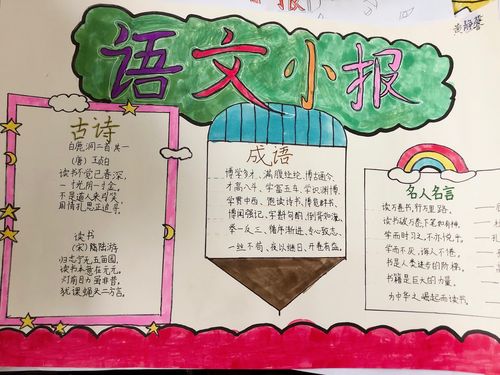 语文小报
古诗
白鹿洞二首其一
(唐) 王贞白
读书不觉已春深,
一寸光阴一寸金。
不是道人来引笑,
周情孔思正追寻。
读书
(宋) 陆游
归志宁无五亩园,
读书本意在元元。
灯前目力虽非昔,
犹课蝇头二万言。
成语
博学多才、满腹经纶、博古通今、
才高八斗、学富五车、学识渊博、
学贯中西、饱读诗书、博览群书、
博闻强记、字斟句酌、倒背如流、
举一反三、循序渐进、专心致志、
一丝不苟、夜以继日、开卷有益。
名人名言
读万卷书,行万里路。
读书破万卷,下笔如有神。
学而时习之,不亦悦乎。
学而不厌,诲人不倦。
书是人类进步的阶梯。
书籍是巨大的力量。
为中华之崛起而读书